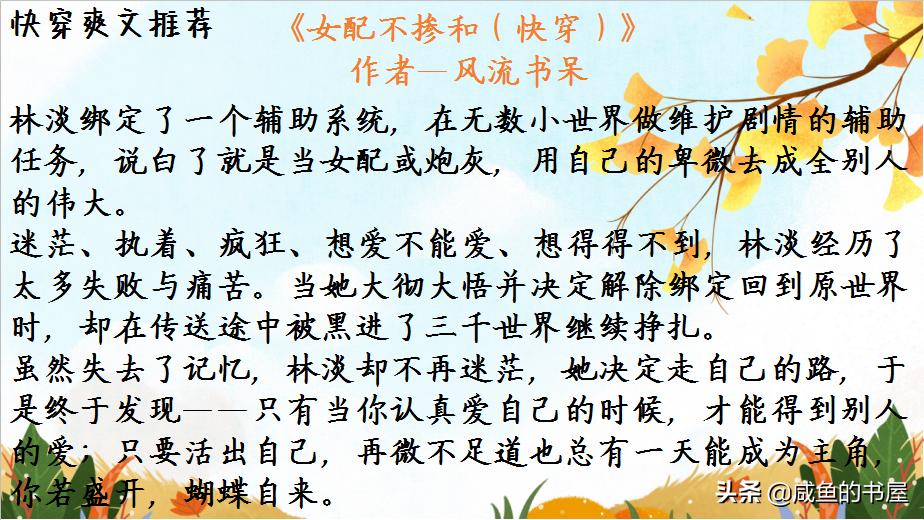 快穿爽文推荐
《女配不掺和（快穿）》
作者—风流书呆
林淡绑定了一个辅助系统，在无数小世界做维护剧情的辅助
任务，说白了就是当女配或炮灰，用自己的卑微去成全别人
的伟大。
迷茫、执着、疯狂、想爱不能爱、想得得不到，林淡经历了
太多失败与痛苦。当她大彻大悟并决定解除绑定回到原世界
时，却在传送途中被黑进了三千世界继续挣扎。
虽然失去了记忆，林淡却不再迷茫，她决定走自己的路，于
是终于发现——只有当你认真爱自己的时候，才能得到别人
的爱；只要活出自己，再微不足道也总有一天能成为主角，
你若盛开，蝴蝶自来。
头条 @咸鱼的书屋